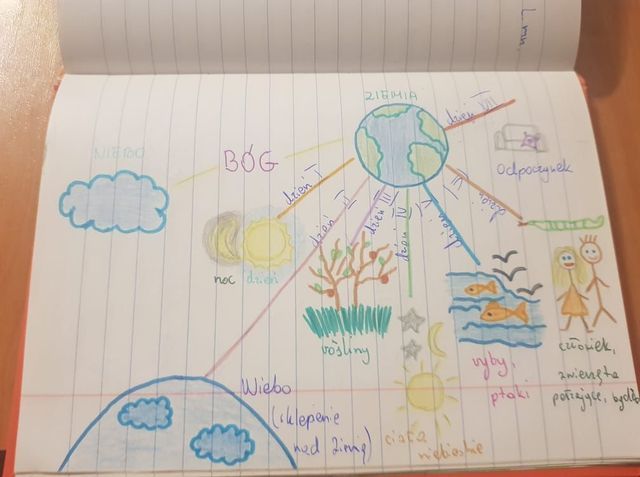 ZIEMIA
NIEBO
BÓG
dzień I
dzień II
dzień III
dzień IV
dzień V
dzień VI
dzień VII
Odpoczynek
noc dzień
rośliny
ryby,
ptaki
człowiek,
zwierzęta
pełzające, bydło
Niebo
(sklepienie
nad ziemią)
ciała
niebieskie